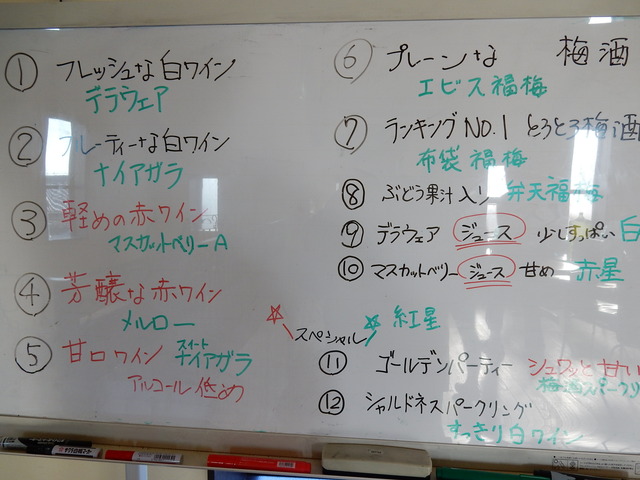 ① フレッシュな白ワイン
デラウェア
② フルーティーな白ワイン
ナイアガラ
③ 軽めの赤ワイン
マスカットベリーA
④ 芳醸な赤ワイン
メルロー
⑤ 甘口ワイン スイートナイアガラ
アルコール低め
⑥ プレーンな 梅酒
エビス福梅
⑦ ランキングNO.1 とろとろ梅酒
布袋福梅
⑧ ぶどう果汁入り 弁天福梅
⑨ デラウェア ジュース 少しすっぱい 白
⑩ マスカットベリー ジュース 甘め 赤星
☆ スペシャル ☆ 紅星
⑪ ゴールデンパーティー シュワッと甘い
梅酒スパークリ
⑫ シャルドネスパークリング
すっきり白ワイン